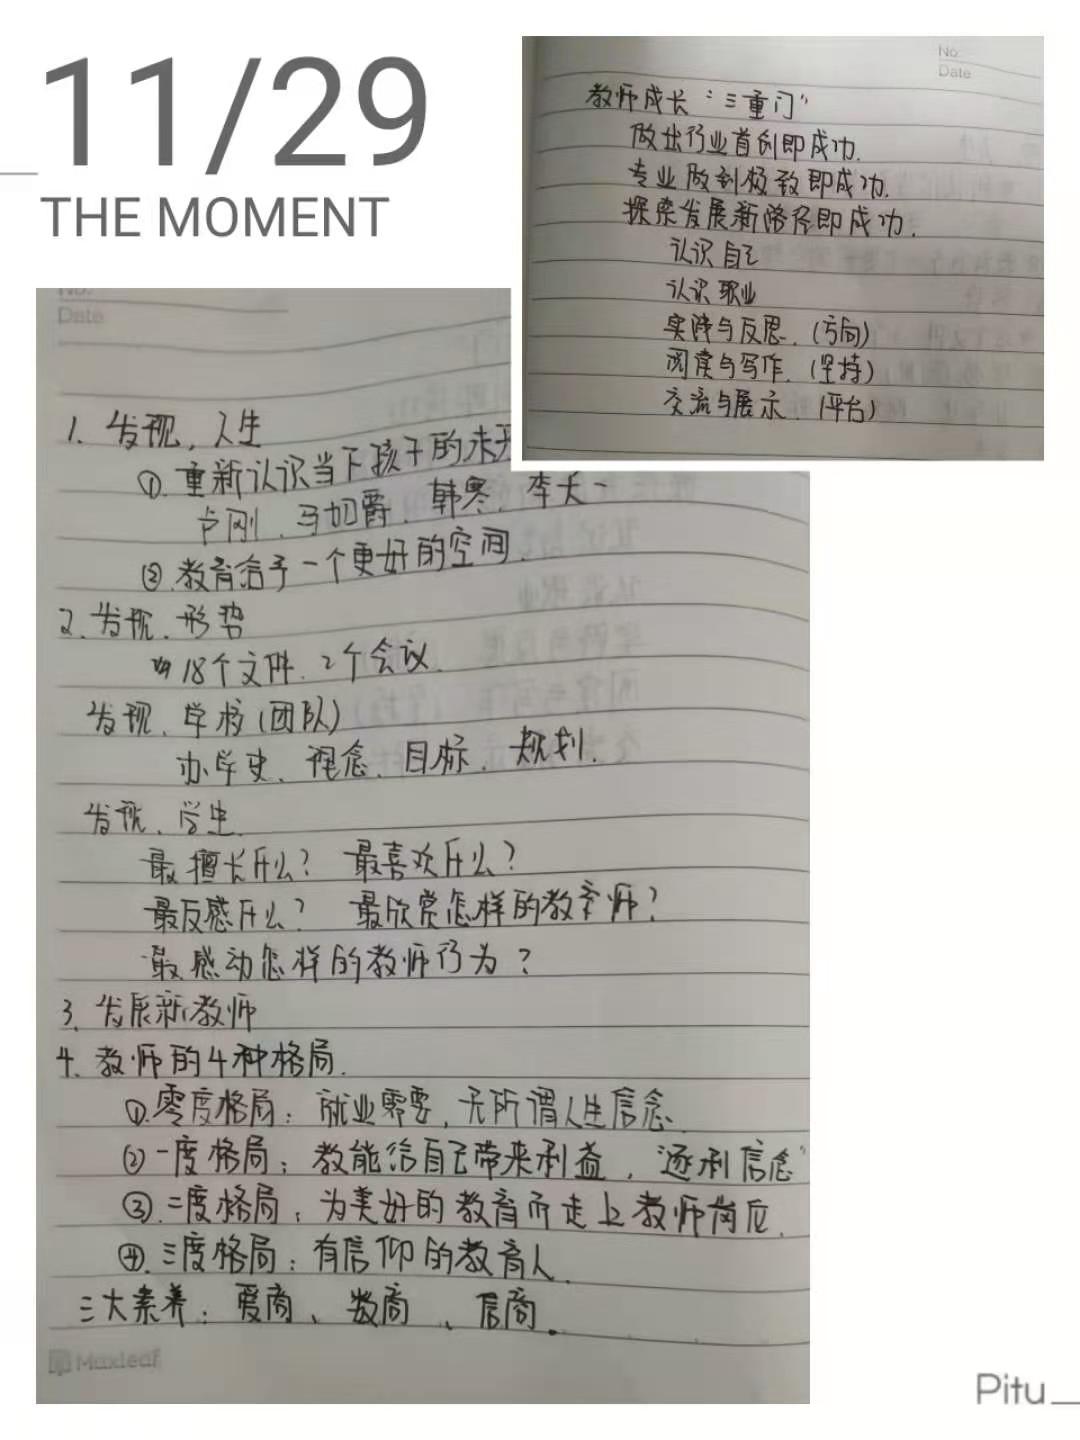 11/29
THE MOMENT
No.
Date
教师成长“三重门”
做出行业首创即成功.
专业做到极致即成功.
探索发展新路径即成功.
认识自己
认识职业
实践与反思.(方向)
阅读与写作.(坚持)
交流与展示.(平台)
No.
Date
1. 发现.人生
①.重新认识当下孩子的未
卢刚.马加爵.韩寒.李天一
②.教育给予一个更好的空间.
2.发现.形势
18个文件.2个会议.
发现.学校(团队)
办学史、理念、目标、规划.
发现.学生.
最擅长什么? 最喜欢什么?
最反感什么? 最欣赏怎样的教师?
最感动怎样的教师行为?
3.发展新教师
4.教师的4种格局.
①.零度格局:就业需要,无所谓人生信念.
②一度格局:教能给自己带来利益,“逐利信念”
③.二度格局:为美好的教育而走上教师岗位.
④.三度格局:有信仰的教育人.
三大素养:爱商、数商、信商.
Maxleaf
Pitu